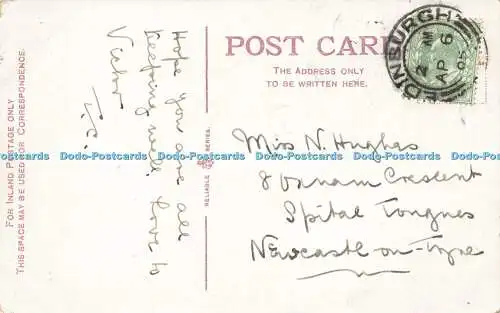 FOR INLAND POSTAGE ONLY
THIS SPACE MAY BE USED FOR CORRESPONDENCE.
Hope you are all
keeping well. Love to
Victor
POST CARD
THE ADDRESS ONLY
TO BE WRITTEN HERE.
EDINBURGH
2 AM
AP 6
05
RELIABLE SERIES.
Miss N. Hughes
8 Crescent
Spital Tongues
Newcastle-on-Tyne
Dodo-Postcards Dodo-Postcards Dodo-Postcards Dodo-Postcards Dodo-Postcards Dodo-Postcards